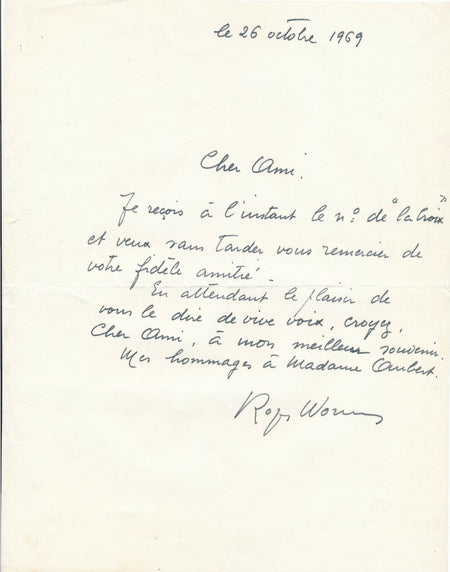 le 26 octobre 1969
Cher Ami.
Je reçois à l'instant le nº de "la Croix"
et veux sans tarder vous remercier de
votre fidèle amitié.
En attendant le plaisir de
vous le dire de vive voix, croyez,
Cher Ami, à mon meilleur souvenir.
Mes hommages à Madame Aubert.
Roger Worms